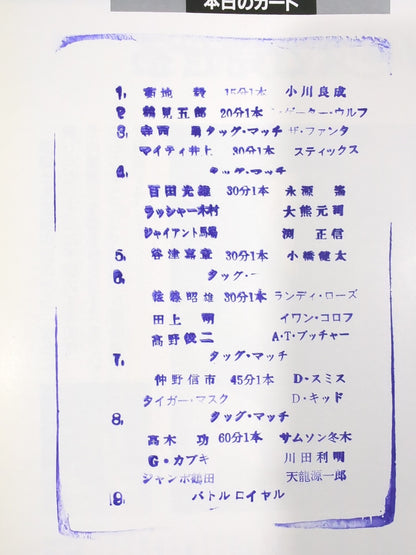 本日のカード
1. 菊地 毅 15分1本 小川良成
2. 鶴見五郎 20分1本 ・ゲーター・ウルフ
3. 寺西 勇 タッグ・マッチ ザ・ファンタ
マイティ井上 30分1本 スティックス
4. タッグ・マッチ
百田光雄 30分1本 永源 遙
ラッシャー木村 大熊元司
ジャイアント馬場 渕 正信
5. 谷津嘉章 30分1本 小橋健太
6. タッグ・
佐藤昭雄 30分1本 ランディ・ローズ
田上 明 イワン・コロフ
高野俊二 A・T・ブッチャー
7. タッグ・マッチ
仲野信市 45分1本 D・スミス
タイガー・マスク D・キッド
8. タッグ・マッチ
高木 功 60分1本 サムソン冬木
G・カブキ 川田利明
ジャンボ鶴田 天龍源一郎
9. バトルロイヤル